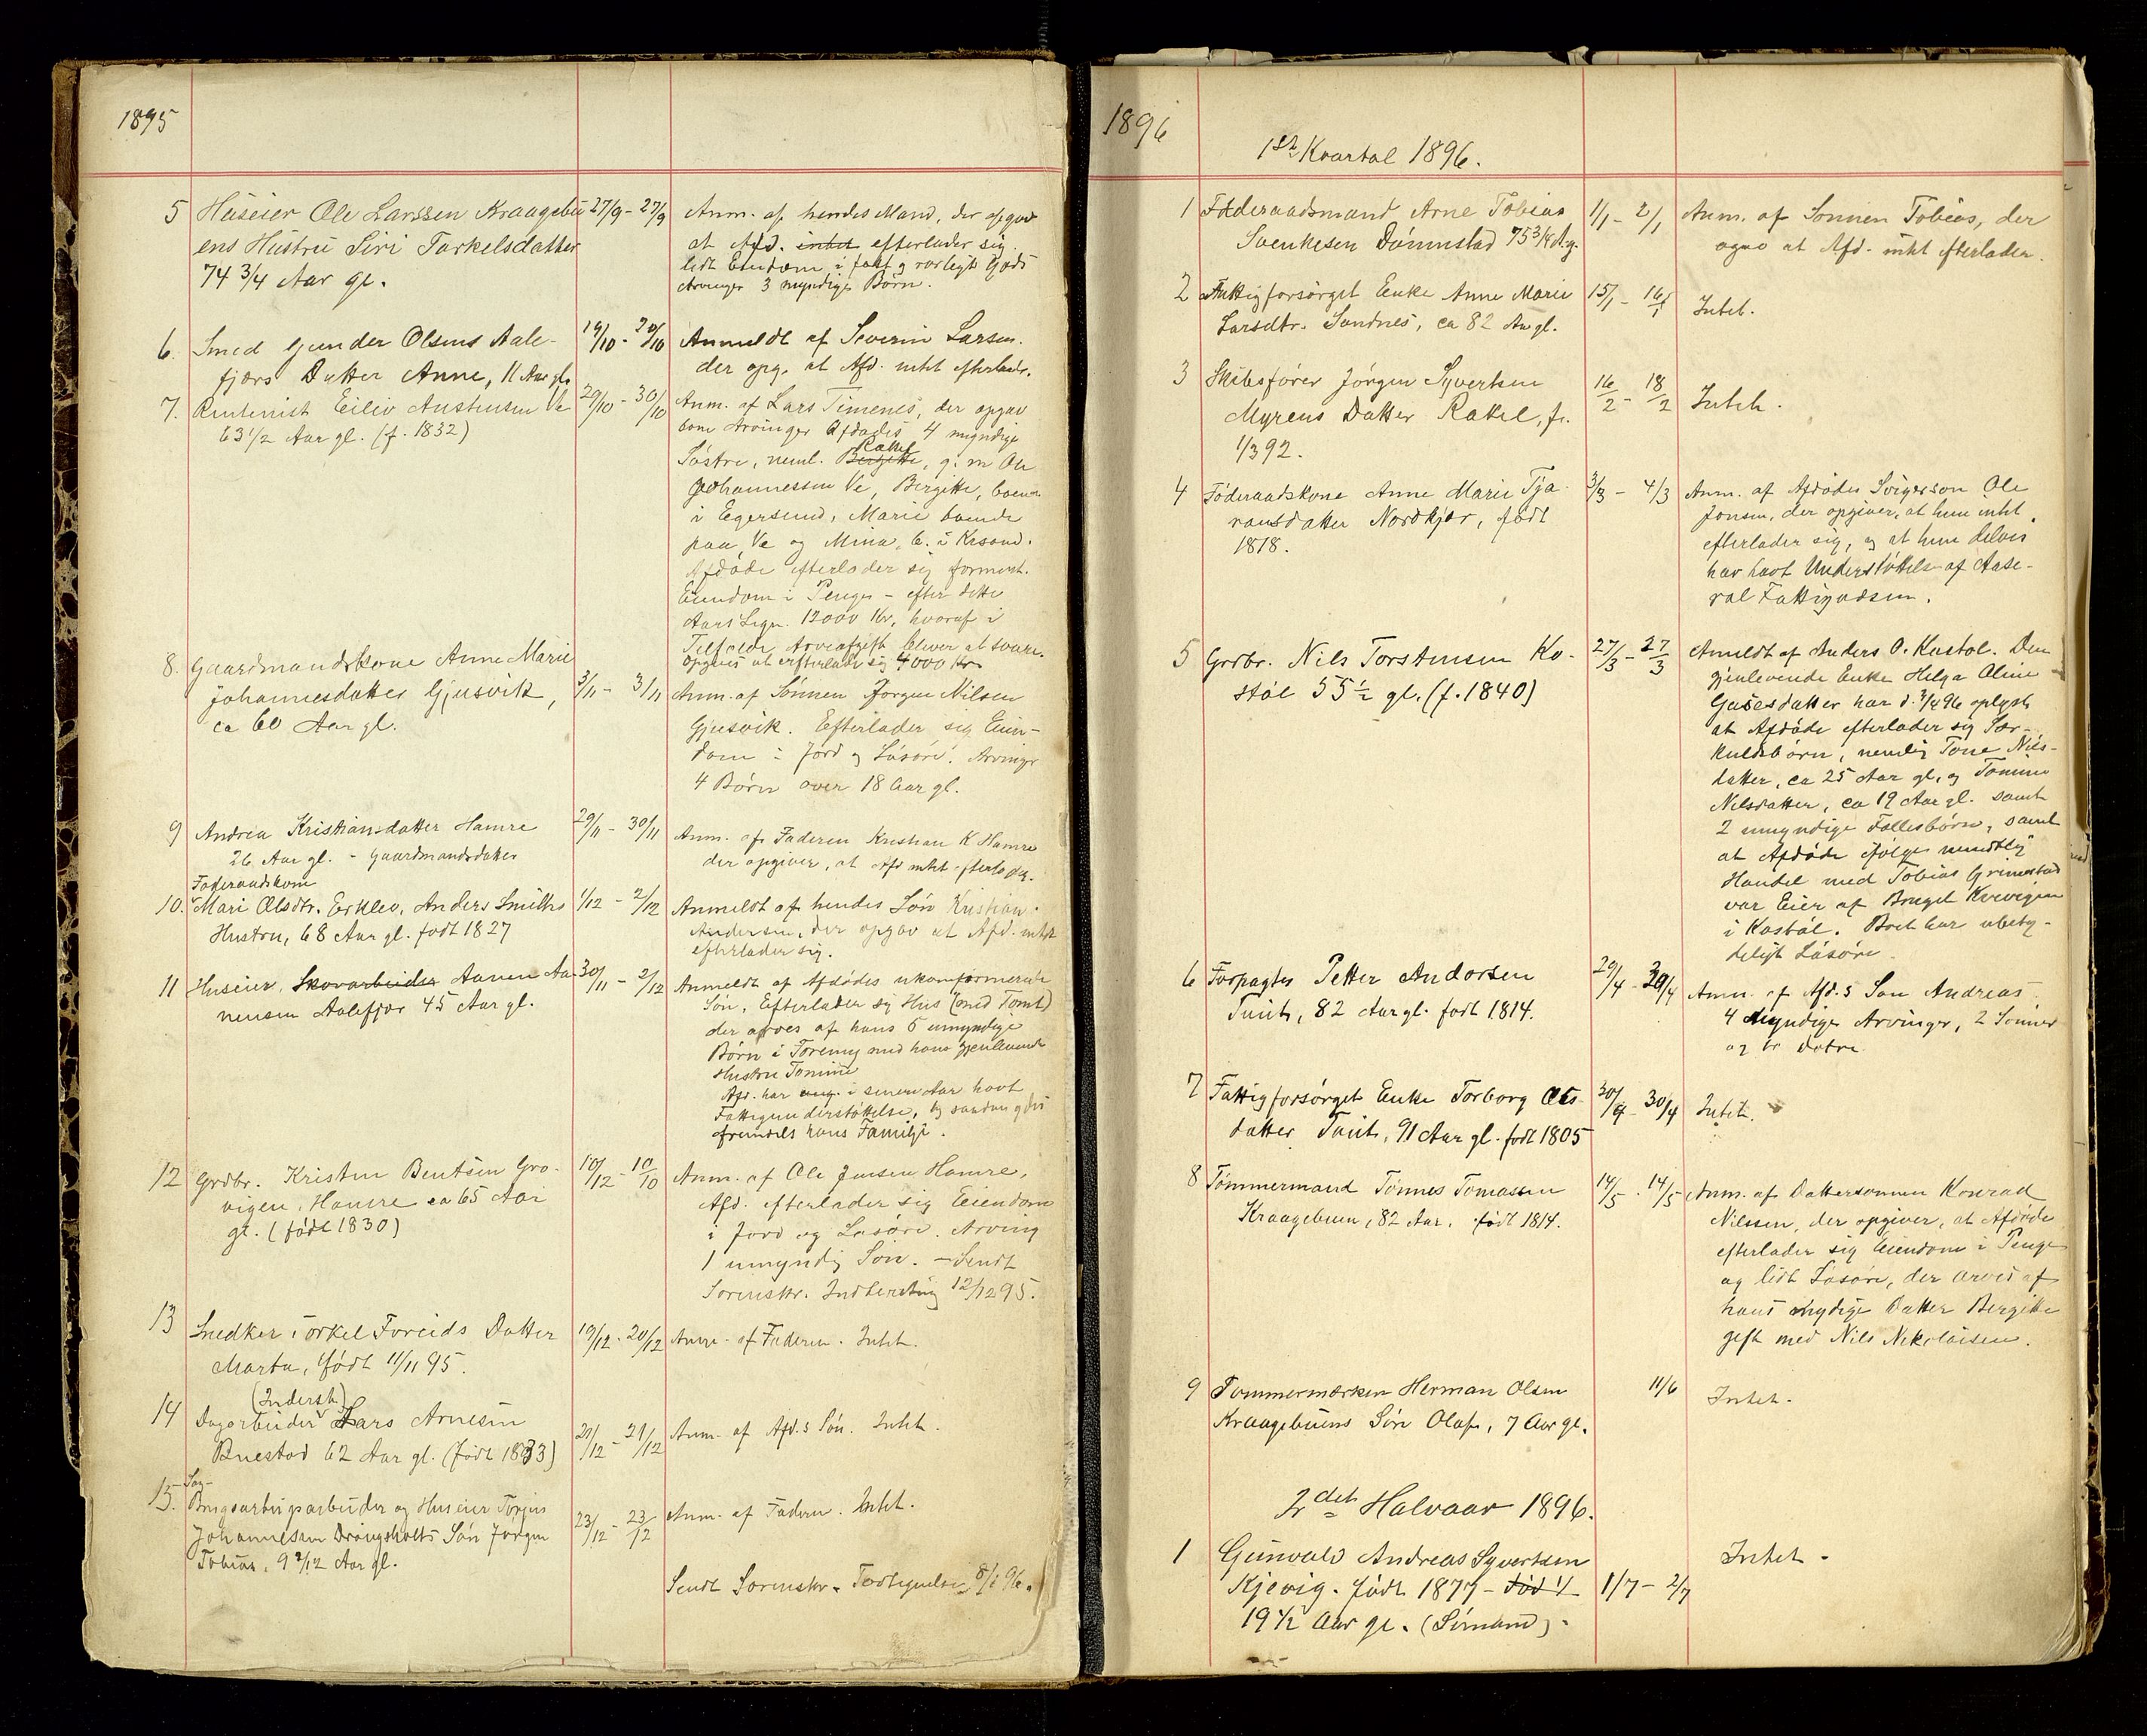 1895
5 Huseier Ole Larssen Kraagebu 27/9 - 27/9 Anm. af hendes Mand, der opgav
ens Hustru Siri Tarkelsdatter at Afd. intet efterlader sig
74 3/4 Aar gl. lidt Eiendom i fast og rørligt Gods
Arvinger 3 myndige Børn.
6. Smed Gunder Olsens Aale- 19/10 - 20/10 Anmeldt af Severin Larsen.
fjærs Datter Anne, 11 Aar gl. der opg. at Afd. intet efterlader.
7. Rentenist Eiliv Austensen Ve 29/10 - 30/10 Anm. af Lars Timenes, der opgav
63 1/2 Aar gl. (f. 1832) som Arvinger Afdødes 4 myndige
Rakel
Søstre, neml. Bergitte, g. m Ole
Johannessen Ve, Bergitte, boende
i Egersund, Marie boende
paa Ve og Mina, b. i Krsand.
Afdøde efterlader sig forment.
Eiendom i Penge - efter dette
Aars Lign. 12000 Kr, hvoraf i
Tilfælde Arveafgift bliver at svare.
opgives at efterlade sig 4000 Kr
8. Gaardmandskone Anne Marie
Johannesdatter Gjusvik, 3/11 - 3/11 Anm. af Sønnen Jørgen Nilsen
ca 60 Aar gl. Gjusvik. Efterlader sig Eien-
dom i Jord og Løsøre. Arvinger
4 Børn over 18 Aar gl.
9 Andrea Kristiansdatter Hamre 29/11 - 30/11 Anm. af Faderen Kristian K Hamre
26 Aar gl. - Gaardmandsdatter der opgiver, at Afd intet efterlader.
Føderaadskone
10. Mari Olsdtr. Erklev, Anders Smiths 1/12 - 2/12 Anmeldt af hendes Søn Kristian
Hustru, 68 Aar gl. født 1827 Andersen, der opgav at Afd. intet
efterlader sig.
11 Huseier, Skovarbeider Aanen Aa- 30/11 - 2/12 Anmeldt af Afdødes ukonfirmerede
nensen Aalefjær 45 Aar gl. Søn. Efterlader sig Hus (med Tomt)
der arves af hans 5 umyndige
Børn i Forening med hans gjenlevende
Hustru Tomine
Afd. har i senere Aar havt
Fattigunderstøttelse, og saadan ydes
fremdeles hans Familje.
12 Grdbr. Kristen Bentsen Gro- 10/12 - 10/10 Anm. af Ole Jensen Hamre,
vigen, Hamre ca 65 Aar Afd. efterlader sig Eiendom
gl. (født 1830) i Jord og Løsøre. Arving
1 umyndig Søn. - Sendt
Sorenskr. Indberetning 12/12 95.
13 Snedker Torkel Foreids Datter 19/12 - 20/12 Anm. af Faderen. Intet.
Marta, født 11/11 95.
(Inderst)
14 Dagarbeider Lars Arnesen 21/12 - 21/12 Anm. af Afd.s Søn. Intet.
Buestad 62 Aar gl. (født 1833)
15. Sag-
Brugsarbeider og Huseier Torjus 23/12 - 23/12 Anm. af Faderen. Intet.
Johannesen Drangsholts Søn Jørgen
Tobias, 9 2/12 Aar gl.
Sendt Sorenskr. Fortegnelse 8/1 96.
1896
1ste Kvartal 1896.
1 Føderaadsmand Arne Tobias 1/1 - 2/1 Anm. af Sønnen Tobias, der
Svenkesen Dønnestad 75 3/4 A. g. opgav at Afd. intet efterlader.
2 Fattigforsørget Enke Anne Marie 15/1 - 16/1 Intet.
Larsdtr. Sandnes, ca 82 Aar gl.
3 Skibsfører Jørgen Syvertsen 16/2 - 18/2 Intet.
Myrens Datter Rakel, f.
1/3 92.
4 Føderaadskone Anne Marie Tja- 3/3 - 4/3 Anm. af Afdødes Svigersøn Ole
ransdatter Nordkjær, født Jonsen, der opgiver, at hun intet
1818. efterlader sig, og at hun delvis
har havt Understøttelse af Aase-
ral Fattigvæsen.
5 Grdbr. Nils Torstensen Ko- 27/3 - 27/3 Anmeldt af Anders O. Kostøl. Den
støl 55 1/2 gl. (f. 1840) gjenlevende Enke Helga Oline
Gusesdatter har d. 3/4 96 oplyst
at Afdøde efterlader sig Sær-
kuldsbørn, nemlig Tone Nils-
datter, ca 25 Aar gl, og Tomine
Nilsdatter, ca 19 Aar gl. samt
2 umyndige Fællesbørn, samt
at Afdøde ifølge mundtlig
Handel med Tobias Grimestad
var Eier af Bruget Kvevigen
i Kostøl. Boet har ubety-
deligt Løsøre.
6 Forpagter Petter Andersen 29/4 - 30/4 Anm. af Afd.s Søn Andreas
Tveit, 82 Aar gl. født 1814. 4 Myndige Arvinger, 2 Sønner
og to døtre
7 Fattigforsørget Enke Torborg Ols- 30/4 - 30/4 Intet.
datter Tveit, 91 Aar gl. født 1805
8 Tømmermand Tønnes Tomassen 14/5 - 14/5 Anm. af Dattersønnen Konrad
Kraagebuen, 82 Aar. født 1814. Nilssen, der opgiver, at Afdøde
efterlader sig Eiendom i Penge
og lidt Løsøre, der arves af
hans Mydige Datter Bergitte
gift med Nils Nikolaisen.
9 Tømmermærker Herman Olsen 11/6 Intet.
Kraagebuens Søn Olaf, 7 Aar gl.
2det Halvaar 1896.
1 Gunvald Andreas Syvertsen Intet -
Kjevig. født 1877 - død 1/ 1/7 - 2/7
19 1/2 Aar gl. (Sømand) -